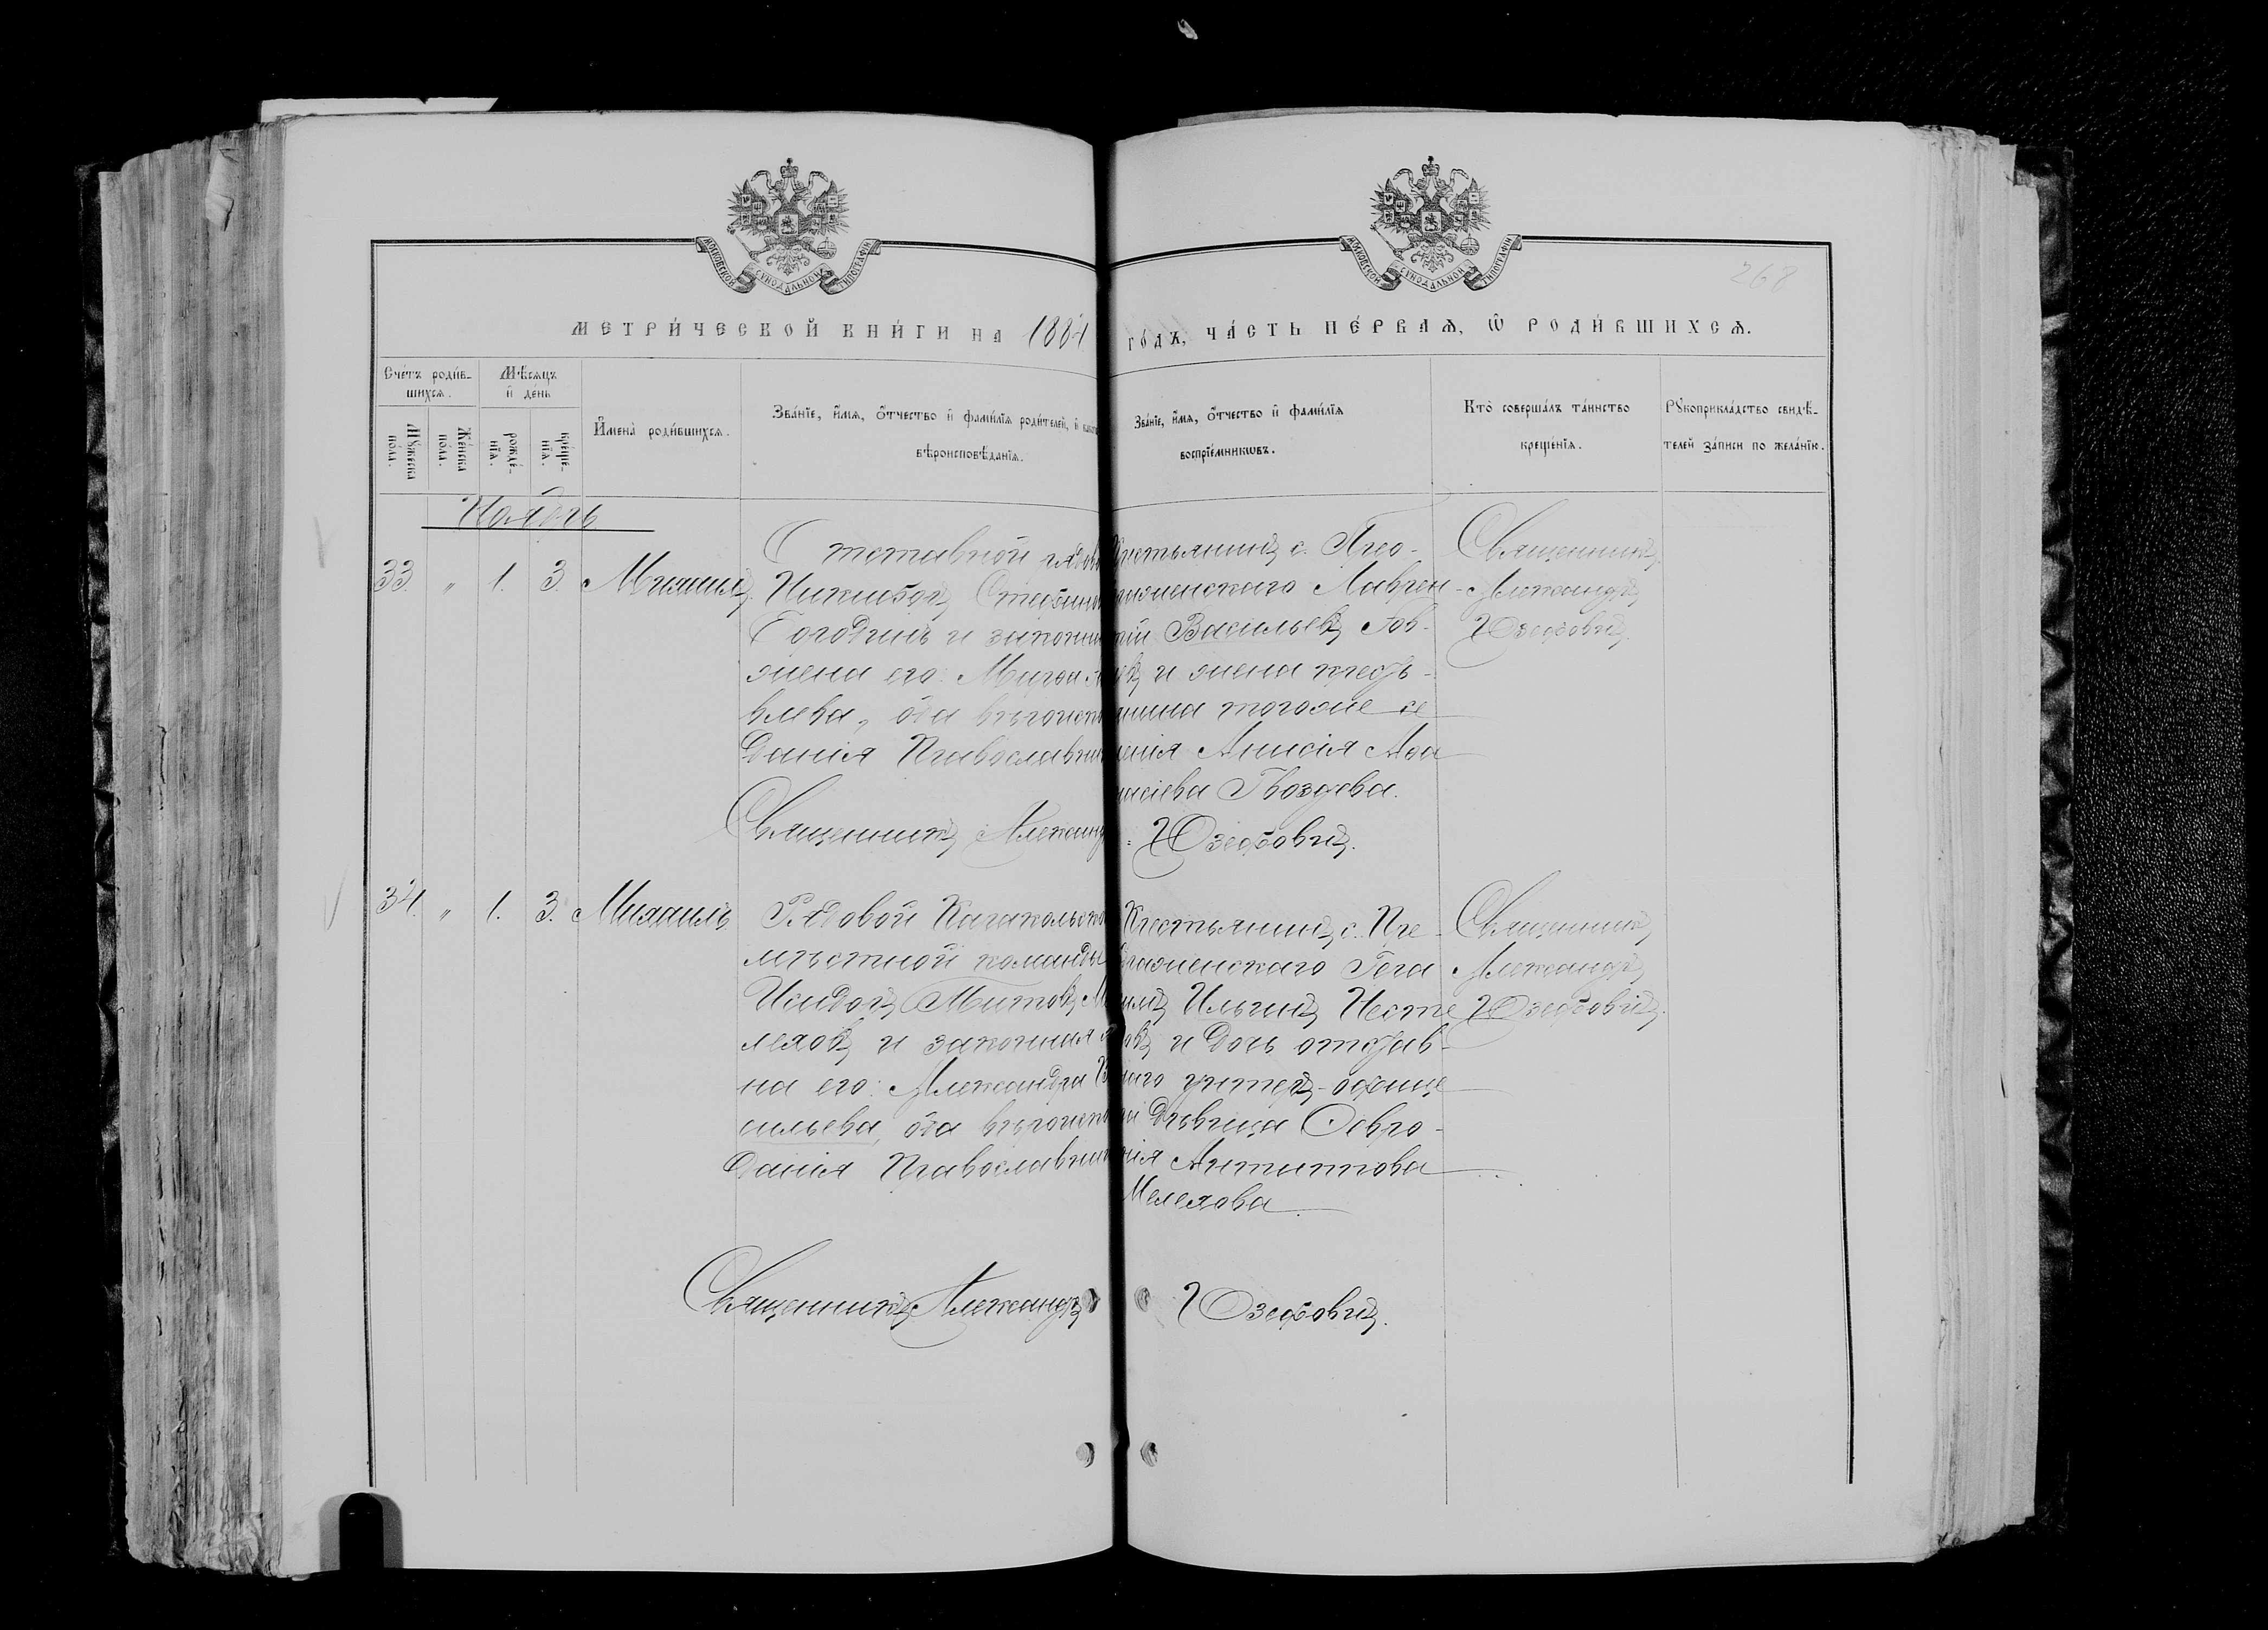 МОСКОВСКОЙ СУНОДАЛЬНОЙ ТИПОГРАФІИ
МОСКОВСКОЙ СУНОДАЛЬНОЙ ТИПОГРАФІИ
268
МЕТРИЧЕСКОЙ КНИГИ НА 1884 годъ, ЧАСТЬ ПЕРВАЯ, Ѡ РОДИВШИХСЯ.
Счетъ родив-
шихся.
Мужеска пола.
Женска пола.
Мѣсяцъ
и день
рожде-
нія.
креще-
нія.
Имена родившихся.
Званіе, имя, отчество и фамилія родителей, и
вѣроисповѣданія.
Званіе, имя, отчество и фамилія
воспріемниковъ.
Кто совершалъ таинство
крещенія.
Рукоприкладство свидѣ-
телей записи по желанію.
Ноябрь
33. " 1. 3. Михаилъ
Отставной рядов
Никифоръ
и законн
жена его:
влева, оба вѣроиспо
данія Православн
Крестьянинъ с. Прео-
браженскаго Лаврен-
тій Васильевъ Гов-
и жена кресть-
янина тогоже се
ленія Анисія Афа
насіева Гвоздева.
Священникъ
Александръ
Юзефовичъ.
Священникъ Александръ Юзефовичъ.
34. " 1. 3. Михаилъ
Рядовой Каракольско
мѣстной команды
Исидоръ Титовъ Ме
леховъ и законная же
на его: Александра Ва
сильева, оба вѣроиспо
данія Православн
Крестьянинъ с. Прео
браженскаго Гера
симъ Ильинъ Несте
ровъ и дочь отстав-
наго унтеръ-офице
ра дѣвица Февро-
нія Антипова
Мелехова.
Священникъ
Александръ
Юзефовичъ.
Священникъ Александръ Юзефовичъ.